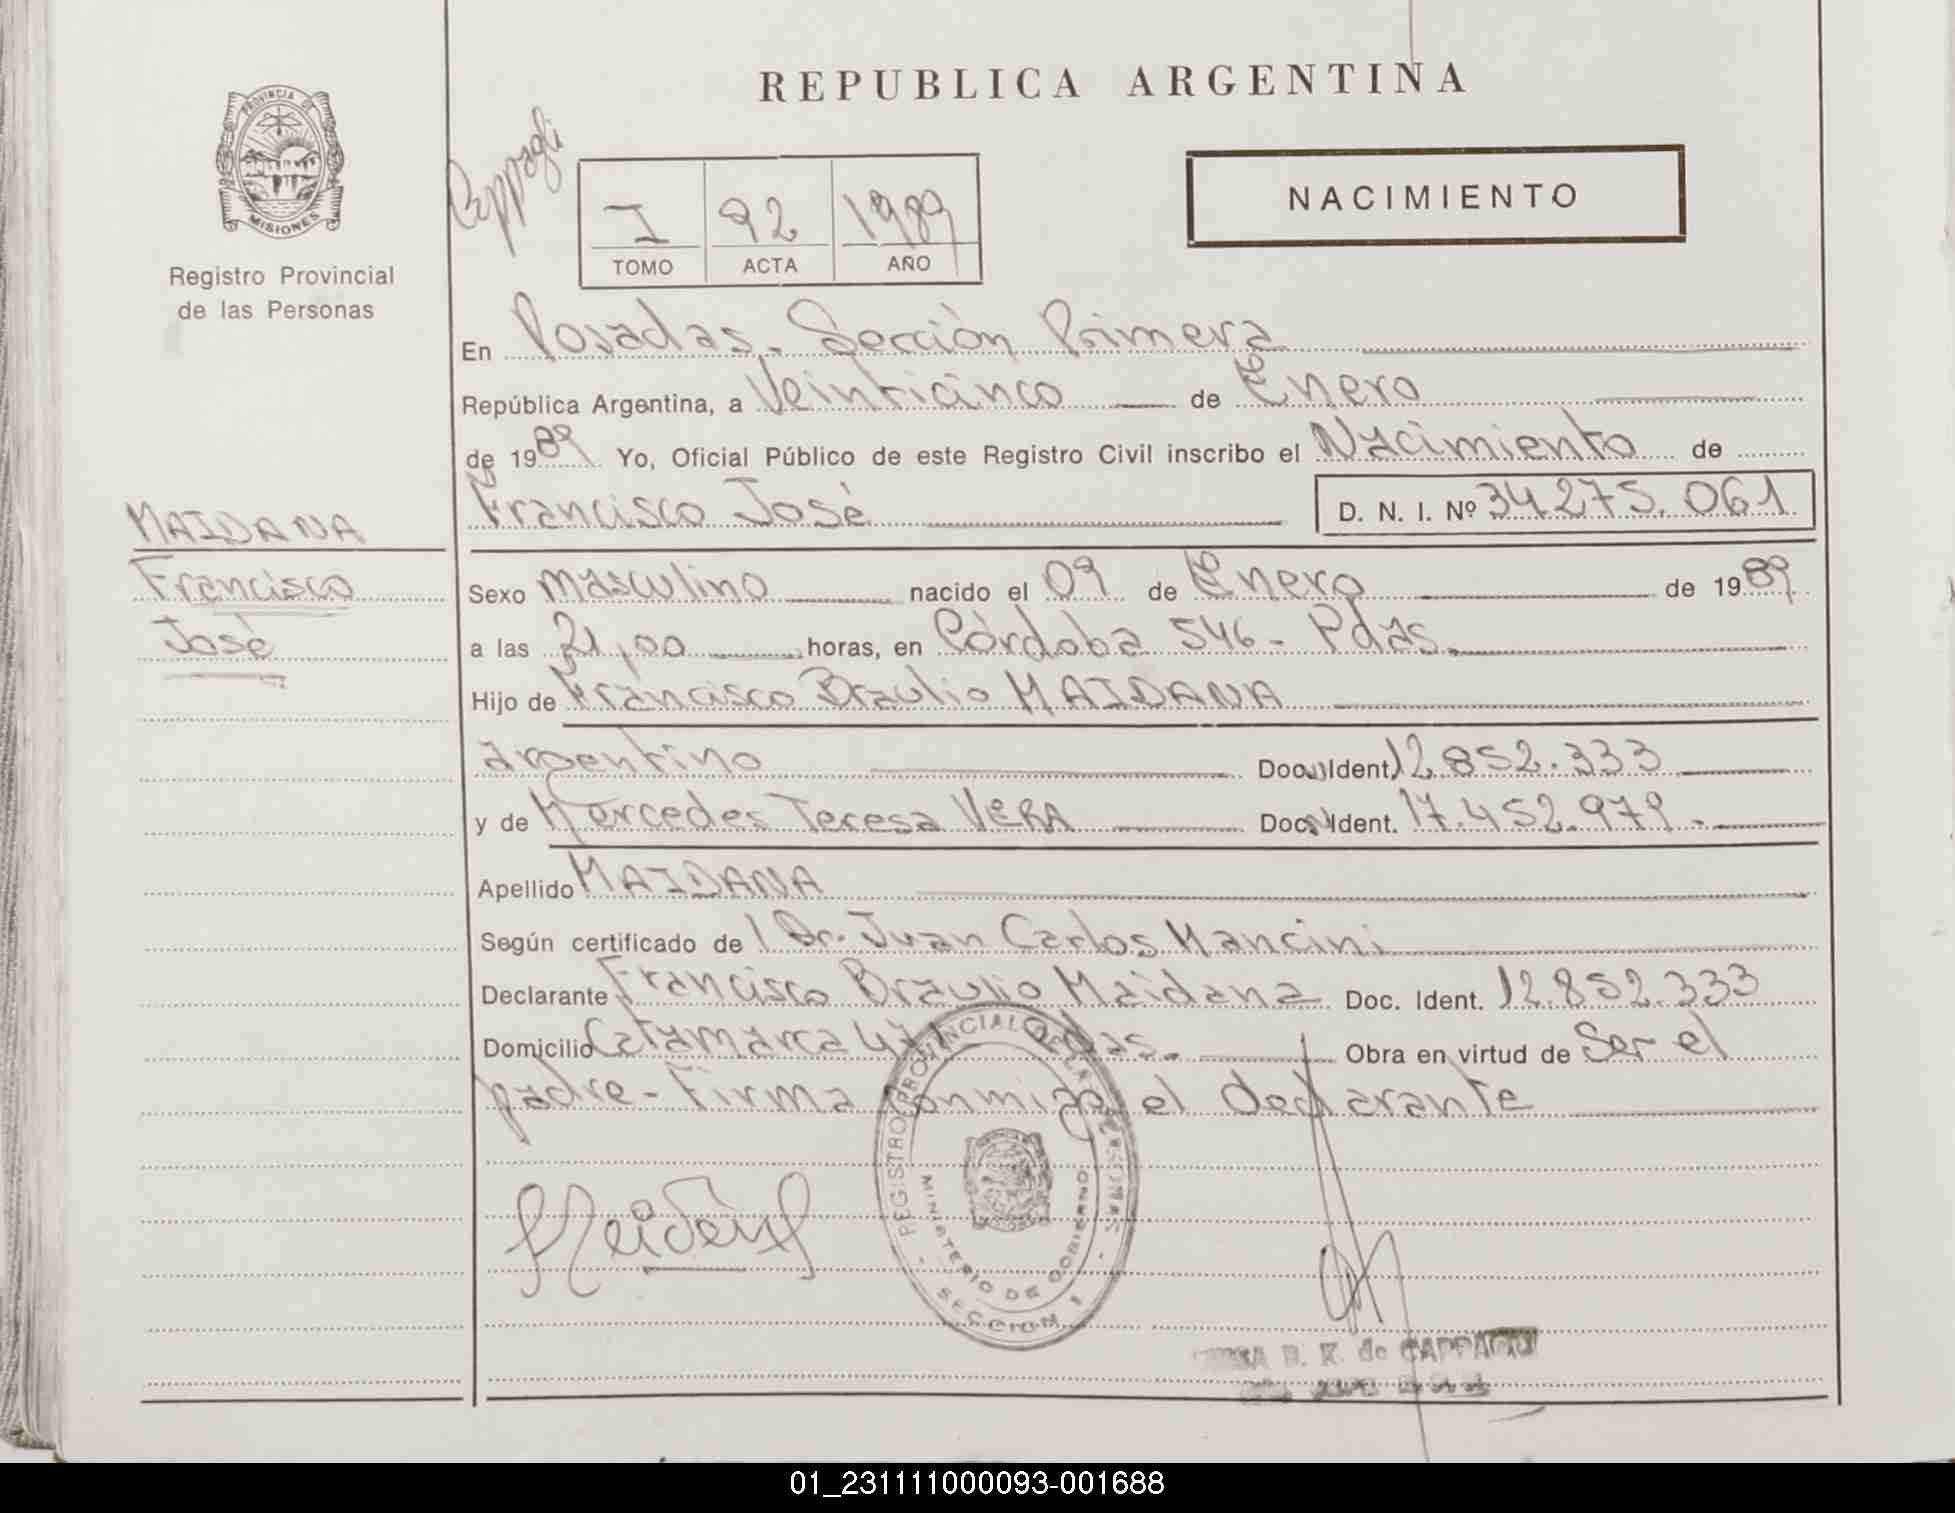 REPUBLICA ARGENTINA
PROVINCIA DE
MISIONES
Registro Provincial
de las Personas
Cappagli
I 92 1989
TOMO ACTA AÑO
NACIMIENTO
En Posadas. Sección Primera
República Argentina, a Veinticinco de Enero
de 1989 Yo, Oficial Público de este Registro Civil inscribo el Nacimiento de
Francisco José D. N. I. Nº 34.275.061
MAIDANA
Francisco
José
Sexo masculino nacido el 09 de Enero de 1989
a las 21,00 horas, en Córdoba 546 - Pdas.
Hijo de Francisco Braulio MAIDANA
argentino Doc. Ident. 12.852.333
y de Mercedes Teresa VERA Doc. Ident. 17.452.979.-
Apellido MAIDANA
Según certificado de Dr. Juan Carlos Mancini
Declarante Francisco Braulio Maidana Doc. Ident. 12.852.333
Domicilio Catamarca Pdas. Obra en virtud de Ser el
padre - Firma conmigo el declarante
REGISTRO PROVINCIAL DE LAS PERSONAS
MINISTERIO DE GOBIERNO
SECCION 1
B. K. de CAPPAGLI
01_231111000093-001688